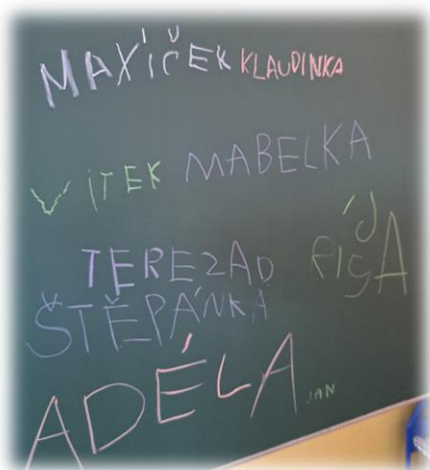 MAXÍČEK KLAUDINKA
VÍTEK MABELKA
TEREZAD
ŠTĚPÁNKA
ADÉLA JAN